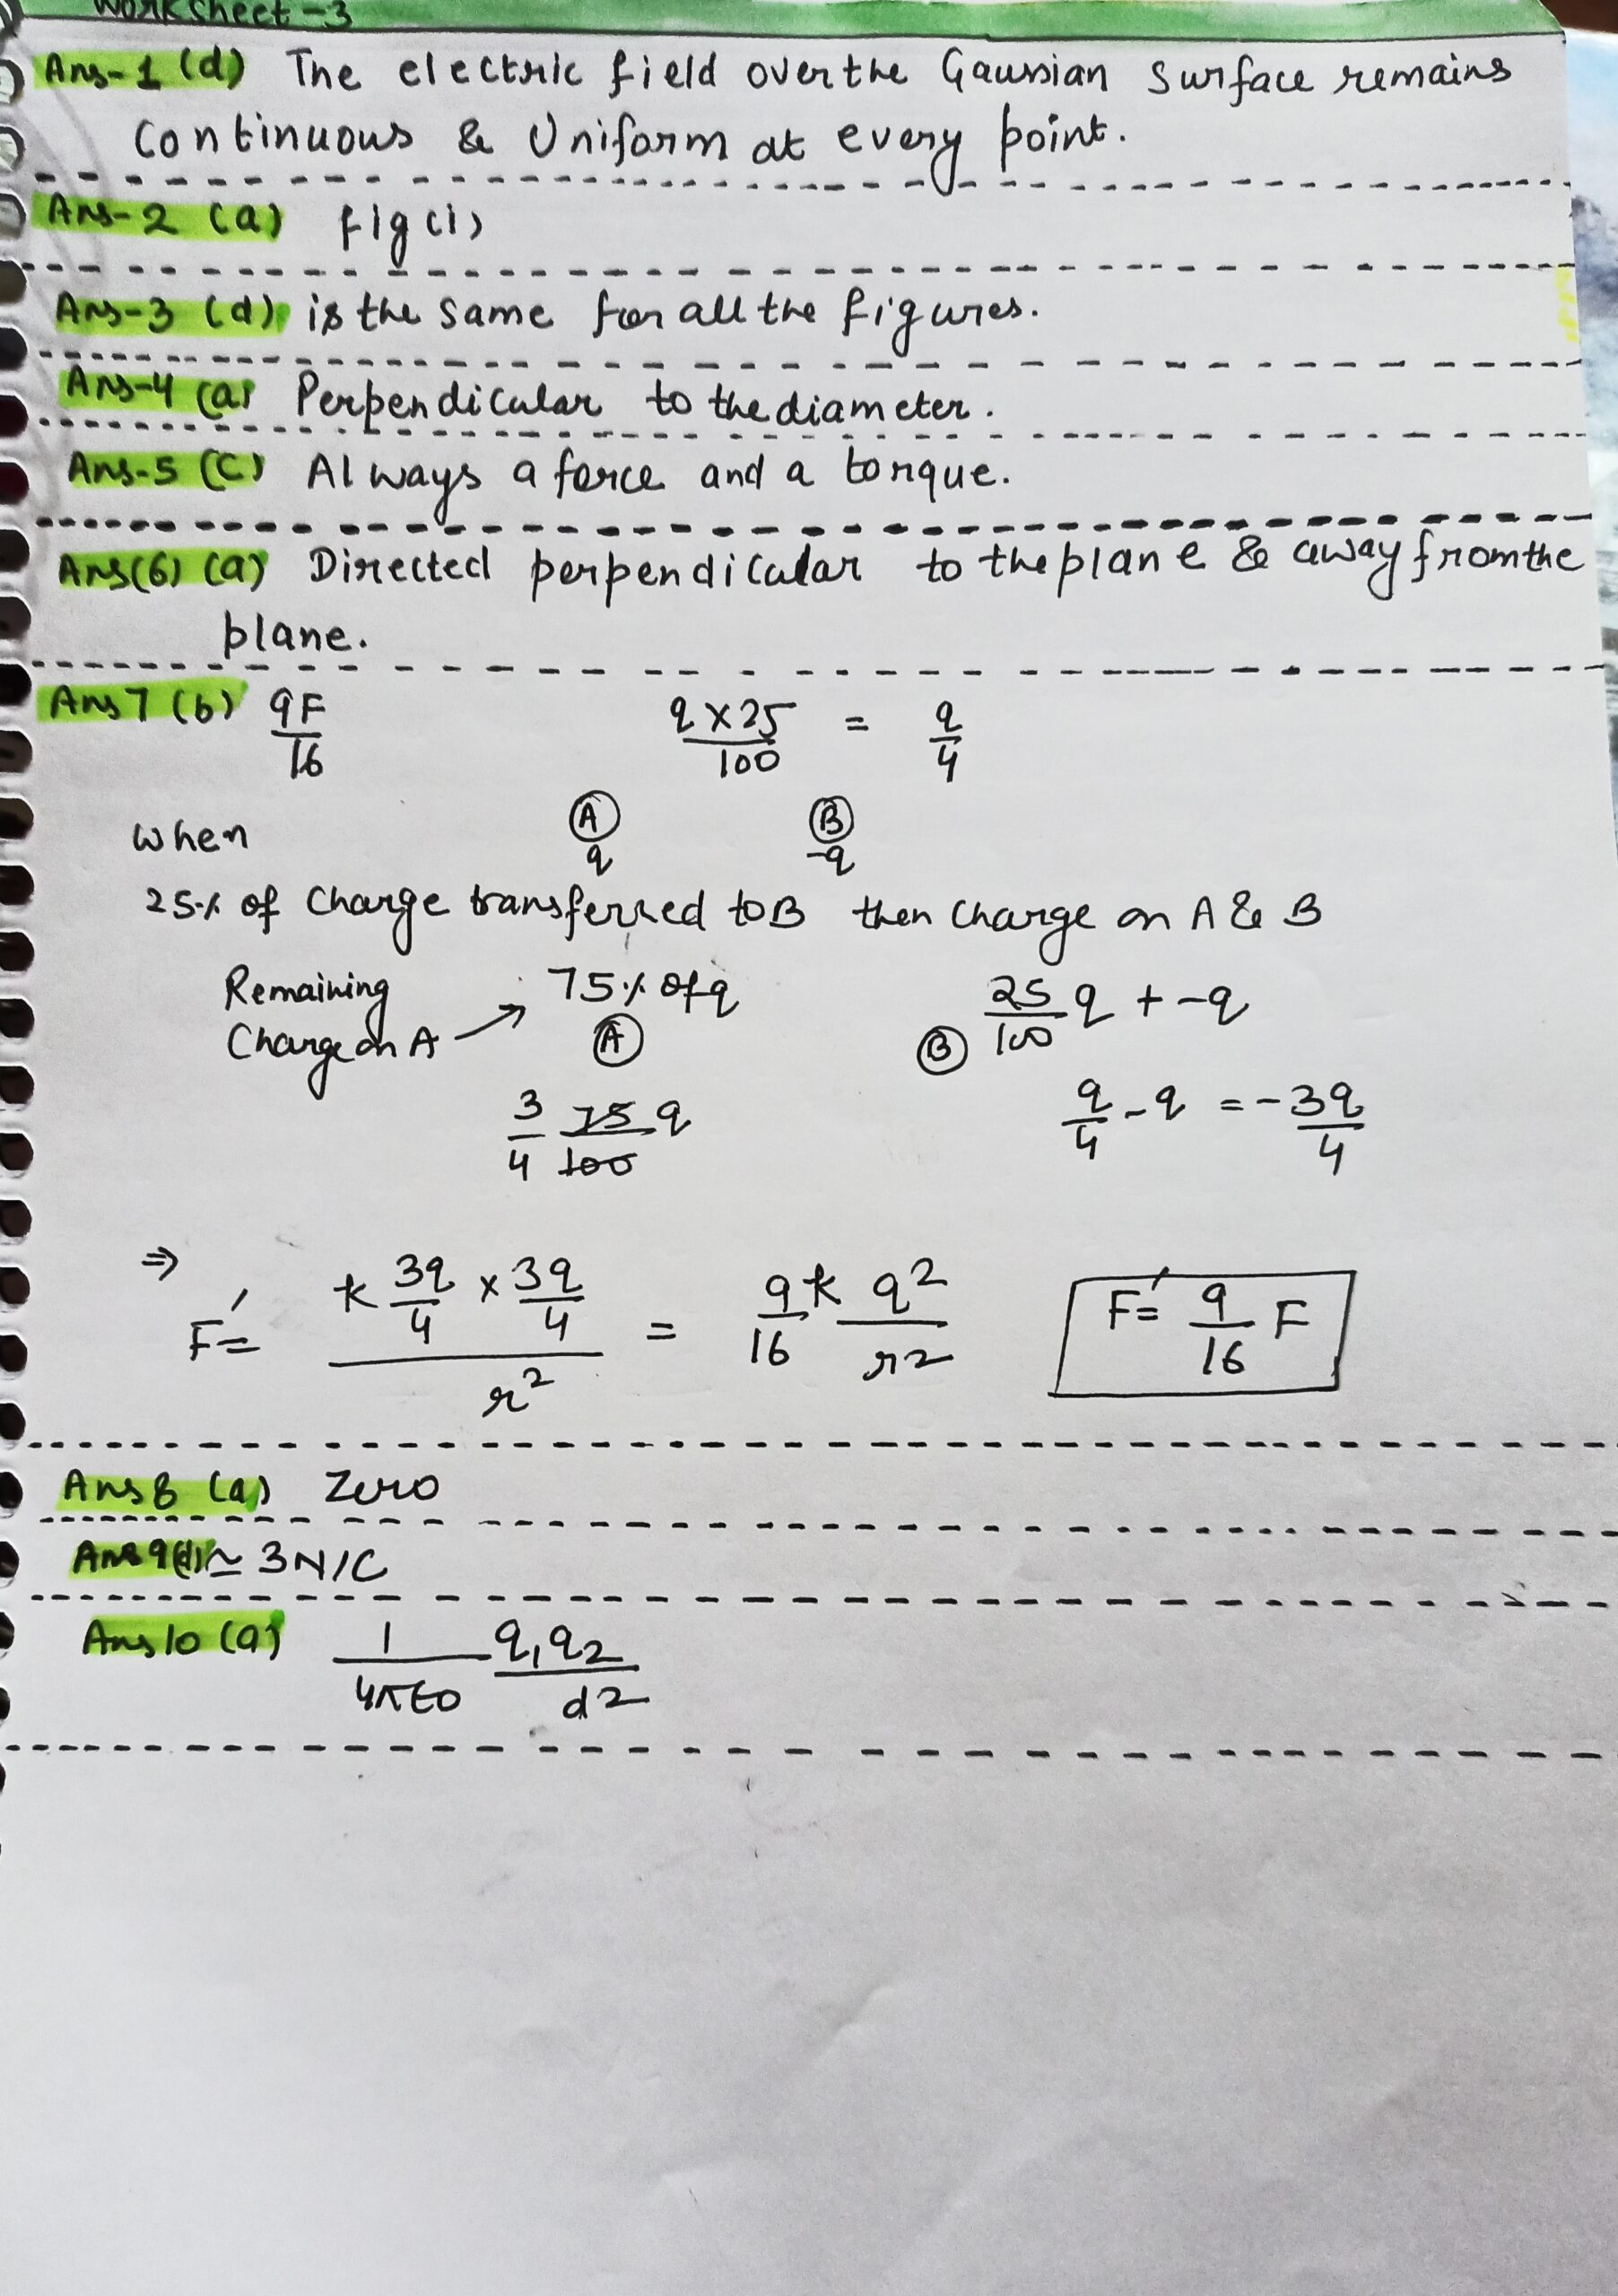 Worksheet-3
Ans-1 (d) The electric field over the Gaussian Surface remains
Continuous & Uniform at every point.
Ans-2 (a) fig(i)
Ans-3 (d) is the same for all the figures.
Ans-4 (a) Perpendicular to the diameter.
Ans-5 (C) Always a force and a torque.
Ans(6) (a) Directed perpendicular to the plane & away from the
plane.
Ans 7 (b) 9F/16 q×25/100 = q/4
When (A) q (B) -q
25% of Charge transferred to B then Charge on A & B
Remaining Charge on A → 75% of q (A) (B) 25/100 q + -q
3/4 75/100 q q/4 - q = -3q/4
⇒ F' = k 3q/4 × 3q/4 / r² = 9/16 k q²/r² F' = 9/16 F
Ans 8 (a) Zero
Ans 9(d) ≃ 3N/C
Ans 10 (a) 1/4πε0 q1q2/d2